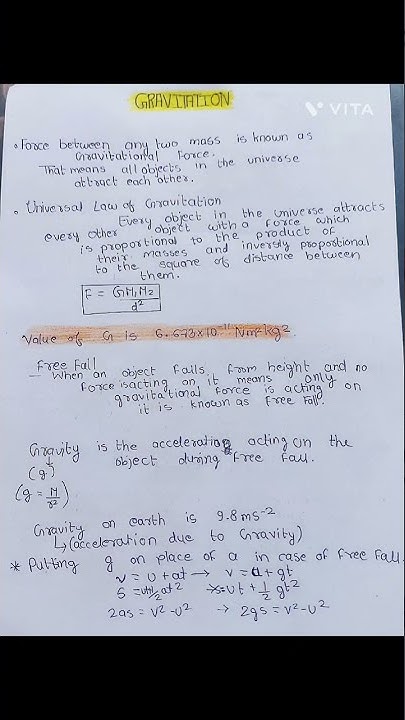 GRAVITATION
VITA
• Force between any two mass is known as
Gravitational Force.
That means all objects in the universe
attract each other.
• Universal Law of Gravitation
Every object in the universe attracts
every other object with a force which
is proportional to the product of
their masses and inversly proportional
to the square of distance between
them.
F = GM₁M₂/d²
Value of G is 6.673×10⁻¹¹ Nm²kg².
Free Fall
— When an object falls from height and no
force is acting on it means only
gravitational force is acting on
it is known as Free Fall.
Gravity is the acceleration acting on the
object during Free Fall.
↓
(g)
(g = M/r²)
Gravity on earth is 9.8 ms⁻²
↳ (acceleration due to Gravity)
* Putting g on place of a in case of Free Fall.
v = u + at → v = u + gt
S = ut + ½ at² → s = ut + ½ gt²
2as = v² - u² → 2gs = v² - u²